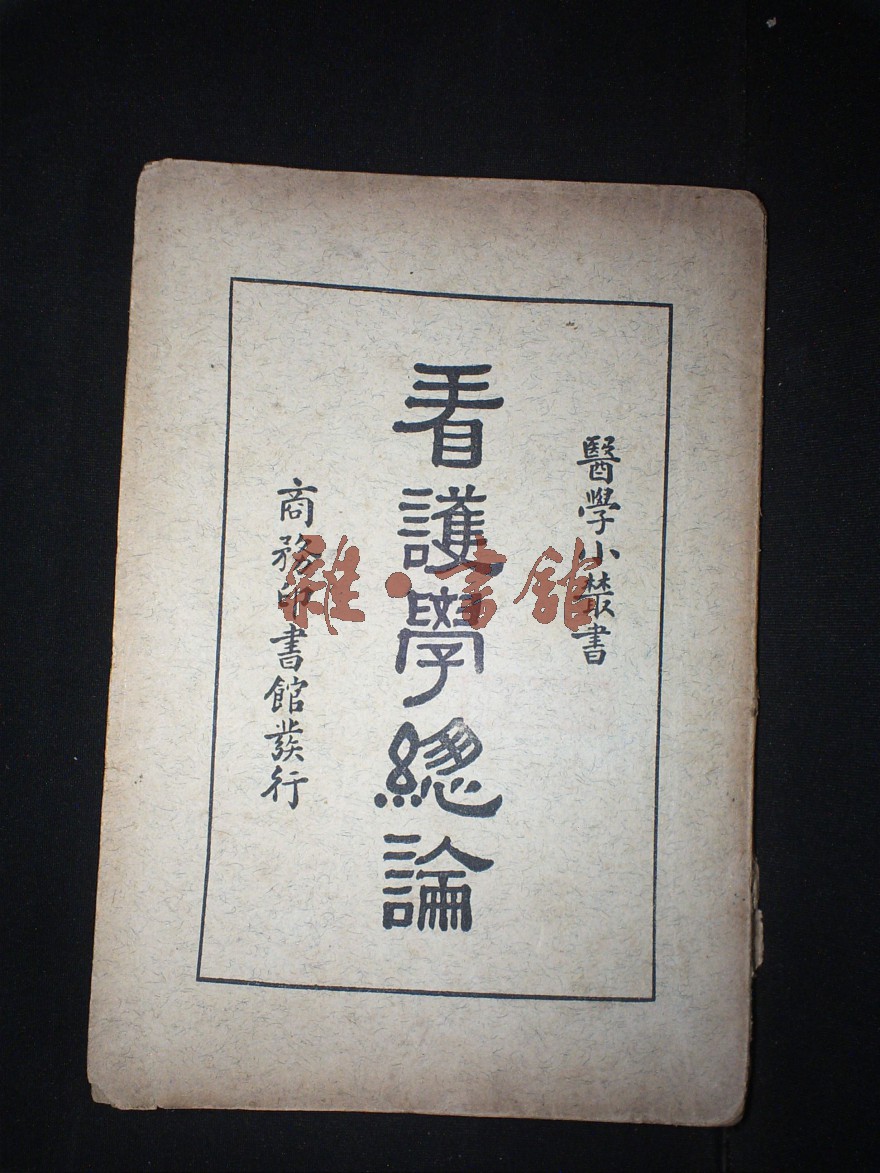 醫學小叢書
看護學總論
商務印書館發行
雜·書館